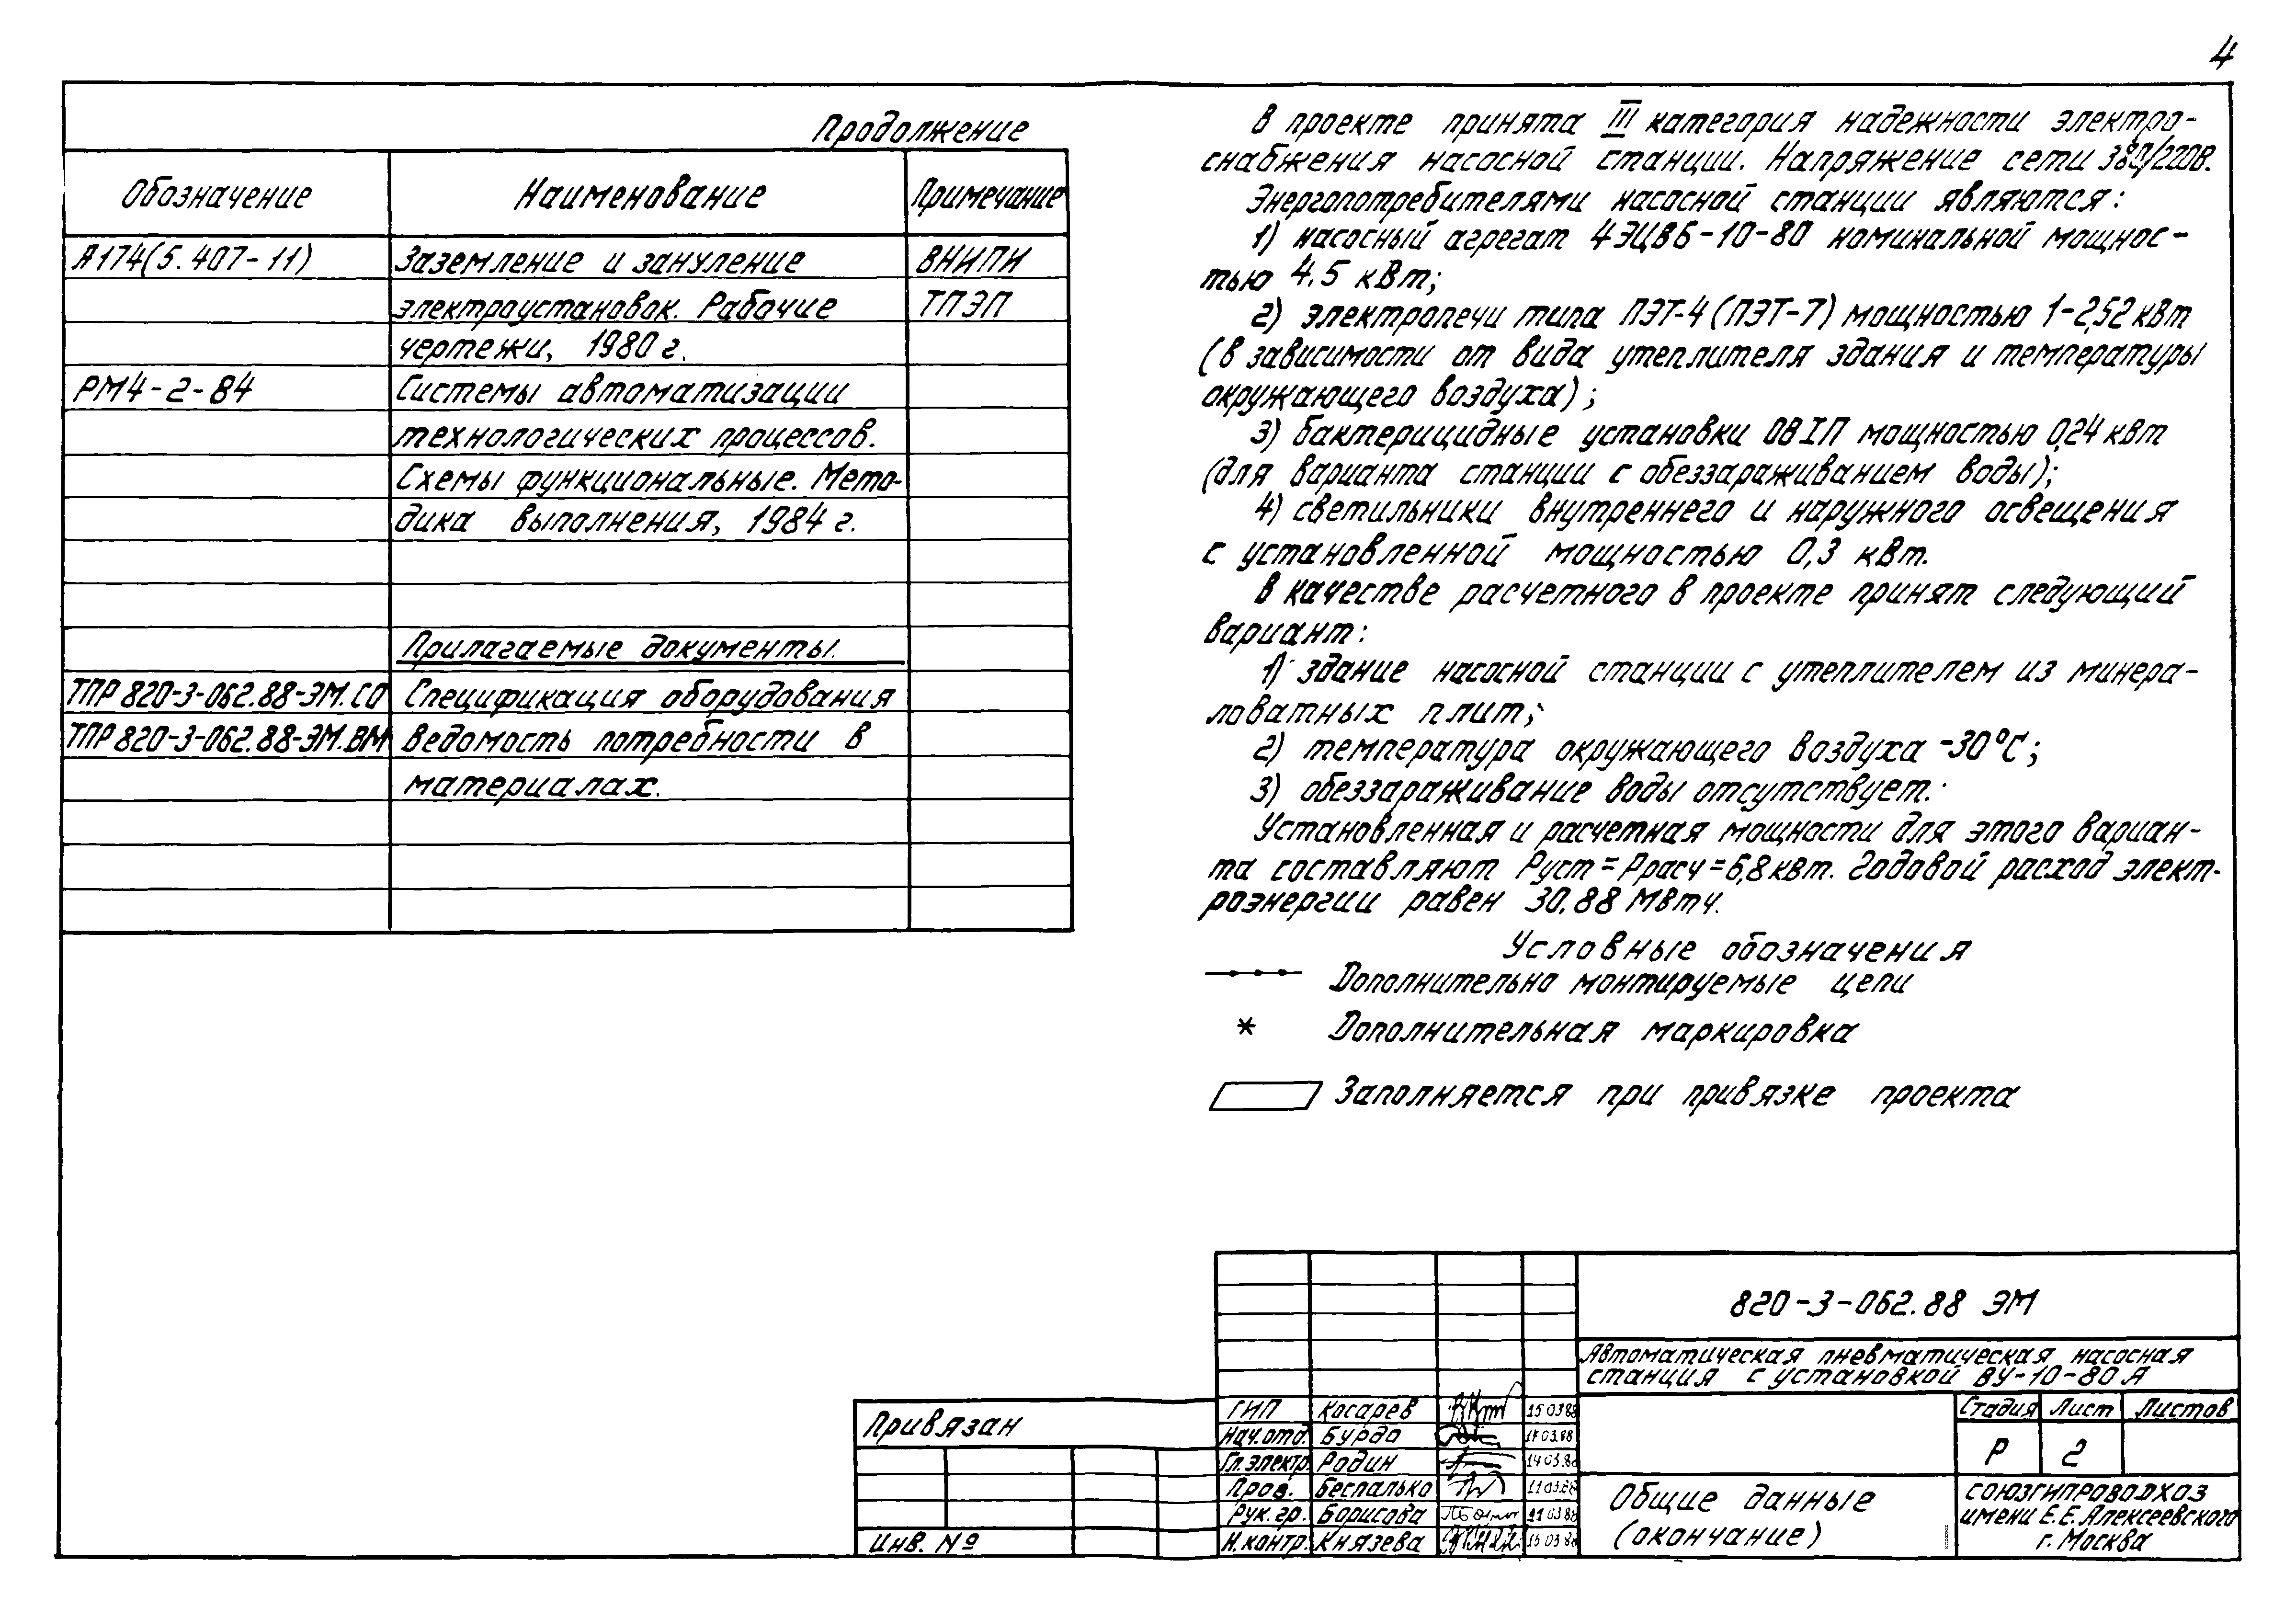 4
Продолжение
Обозначение Наименование Примечание
А174(5.407-11) Заземление и зануление ВНИПИ
электроустановок. Рабочие ТПЭП
чертежи, 1980 г.
РМ4-2-84 Системы автоматизации
технологических процессов.
Схемы функциональные. Мето-
дика выполнения, 1984 г.
Прилагаемые документы.
ТПР 820-3-062.88-ЭМ.СО Спецификация оборудования
ТПР 820-3-062.88-ЭМ.ВМ Ведомость потребности в
материалах.
В проекте принята III категория надежности электро-
снабжения насосной станции. Напряжение сети 380/220В.
Энергопотребителями насосной станции являются:
1) насосный агрегат 4ЭЦВ6-10-80 номинальной мощнос-
тью 4.5 кВт;
2) электропечи типа ПЭТ-4 (ПЭТ-7) мощностью 1-2,52 кВт
(в зависимости от вида утеплителя здания и температуры
окружающего воздуха);
3) бактерицидные установки ОВ1П мощностью 0,24 кВт
(для варианта станции с обеззараживанием воды);
4) светильники внутреннего и наружного освещения
с установленной мощностью 0,3 кВт.
В качестве расчетного в проекте принят следующий
вариант:
1) здание насосной станции с утеплителем из минера-
ловатных плит;
2) температура окружающего воздуха -30°С;
3) обеззараживание воды отсутствует.
Установленная и расчетная мощности для этого вариан-
та составляют Руст = Ррасч = 6,8 кВт. Годовой расход элект-
роэнергии равен 30.88 МВтч.
Условные обозначения
Дополнительно монтируемые цепи
* Дополнительная маркировка
Заполняется при привязке проекта
820-3-062.88 ЭМ
Автоматическая пневматическая насосная
станция с установкой ВУ-10-80А
Стадия Лист Листов
Р 2
Общие данные
(окончание)
СОЮЗГИПРОВОДХОЗ
имени Е.Е.Алексеевского
г. Москва
ГИП Косарев 15 03 88
Нач.отд. Бурдо 03.88
Гл.электр. Родин 14 03.88
Пров. Беспалько 11 03.88
Рук.гр. Борисова 11 03 88
Н.контр. Князева 15 03 88
Привязан
Инв. №